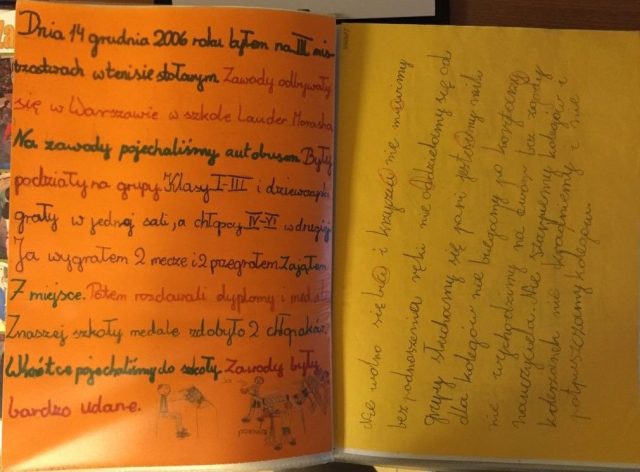 Dnia 14 grudnia 2006 roku byłem na III mis-
trzostwach w tenisie stołowym Zawody odbywały
się w Warszawie w szkole Lauder Morasha
Na zawody pojechaliśmy autobusem Były
podziały na grupy Klasy I-III i dziewczynki
grały w jednej sali, a chłopcy IV-VI w drugiej
Ja wygrałem 2 mecze i 2 przegrałem Zająłem
7 miejsce. Potem rozdawali dyplomy i medale
Z naszej szkoły medale zdobyło 2 chłopaków.
Wkrótce pojechaliśmy do szkoły. Zawody były
bardzo udane.
Nie wolno się bić i krzyczeć nie mówimy
bez podnoszenia ręki nie oddzielamy się od
grupy słuchamy się pani jesteśmy mili
dla kolegów nie biegamy po korytarzu
nie wychodzimy na dwór bez zgody
nauczyciela. Nie szarpiemy kolegów i
koleżanek nie kradniemy i nie